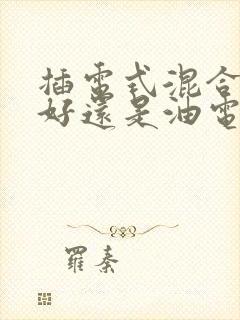 插電式混合
好還是油電
羅秦